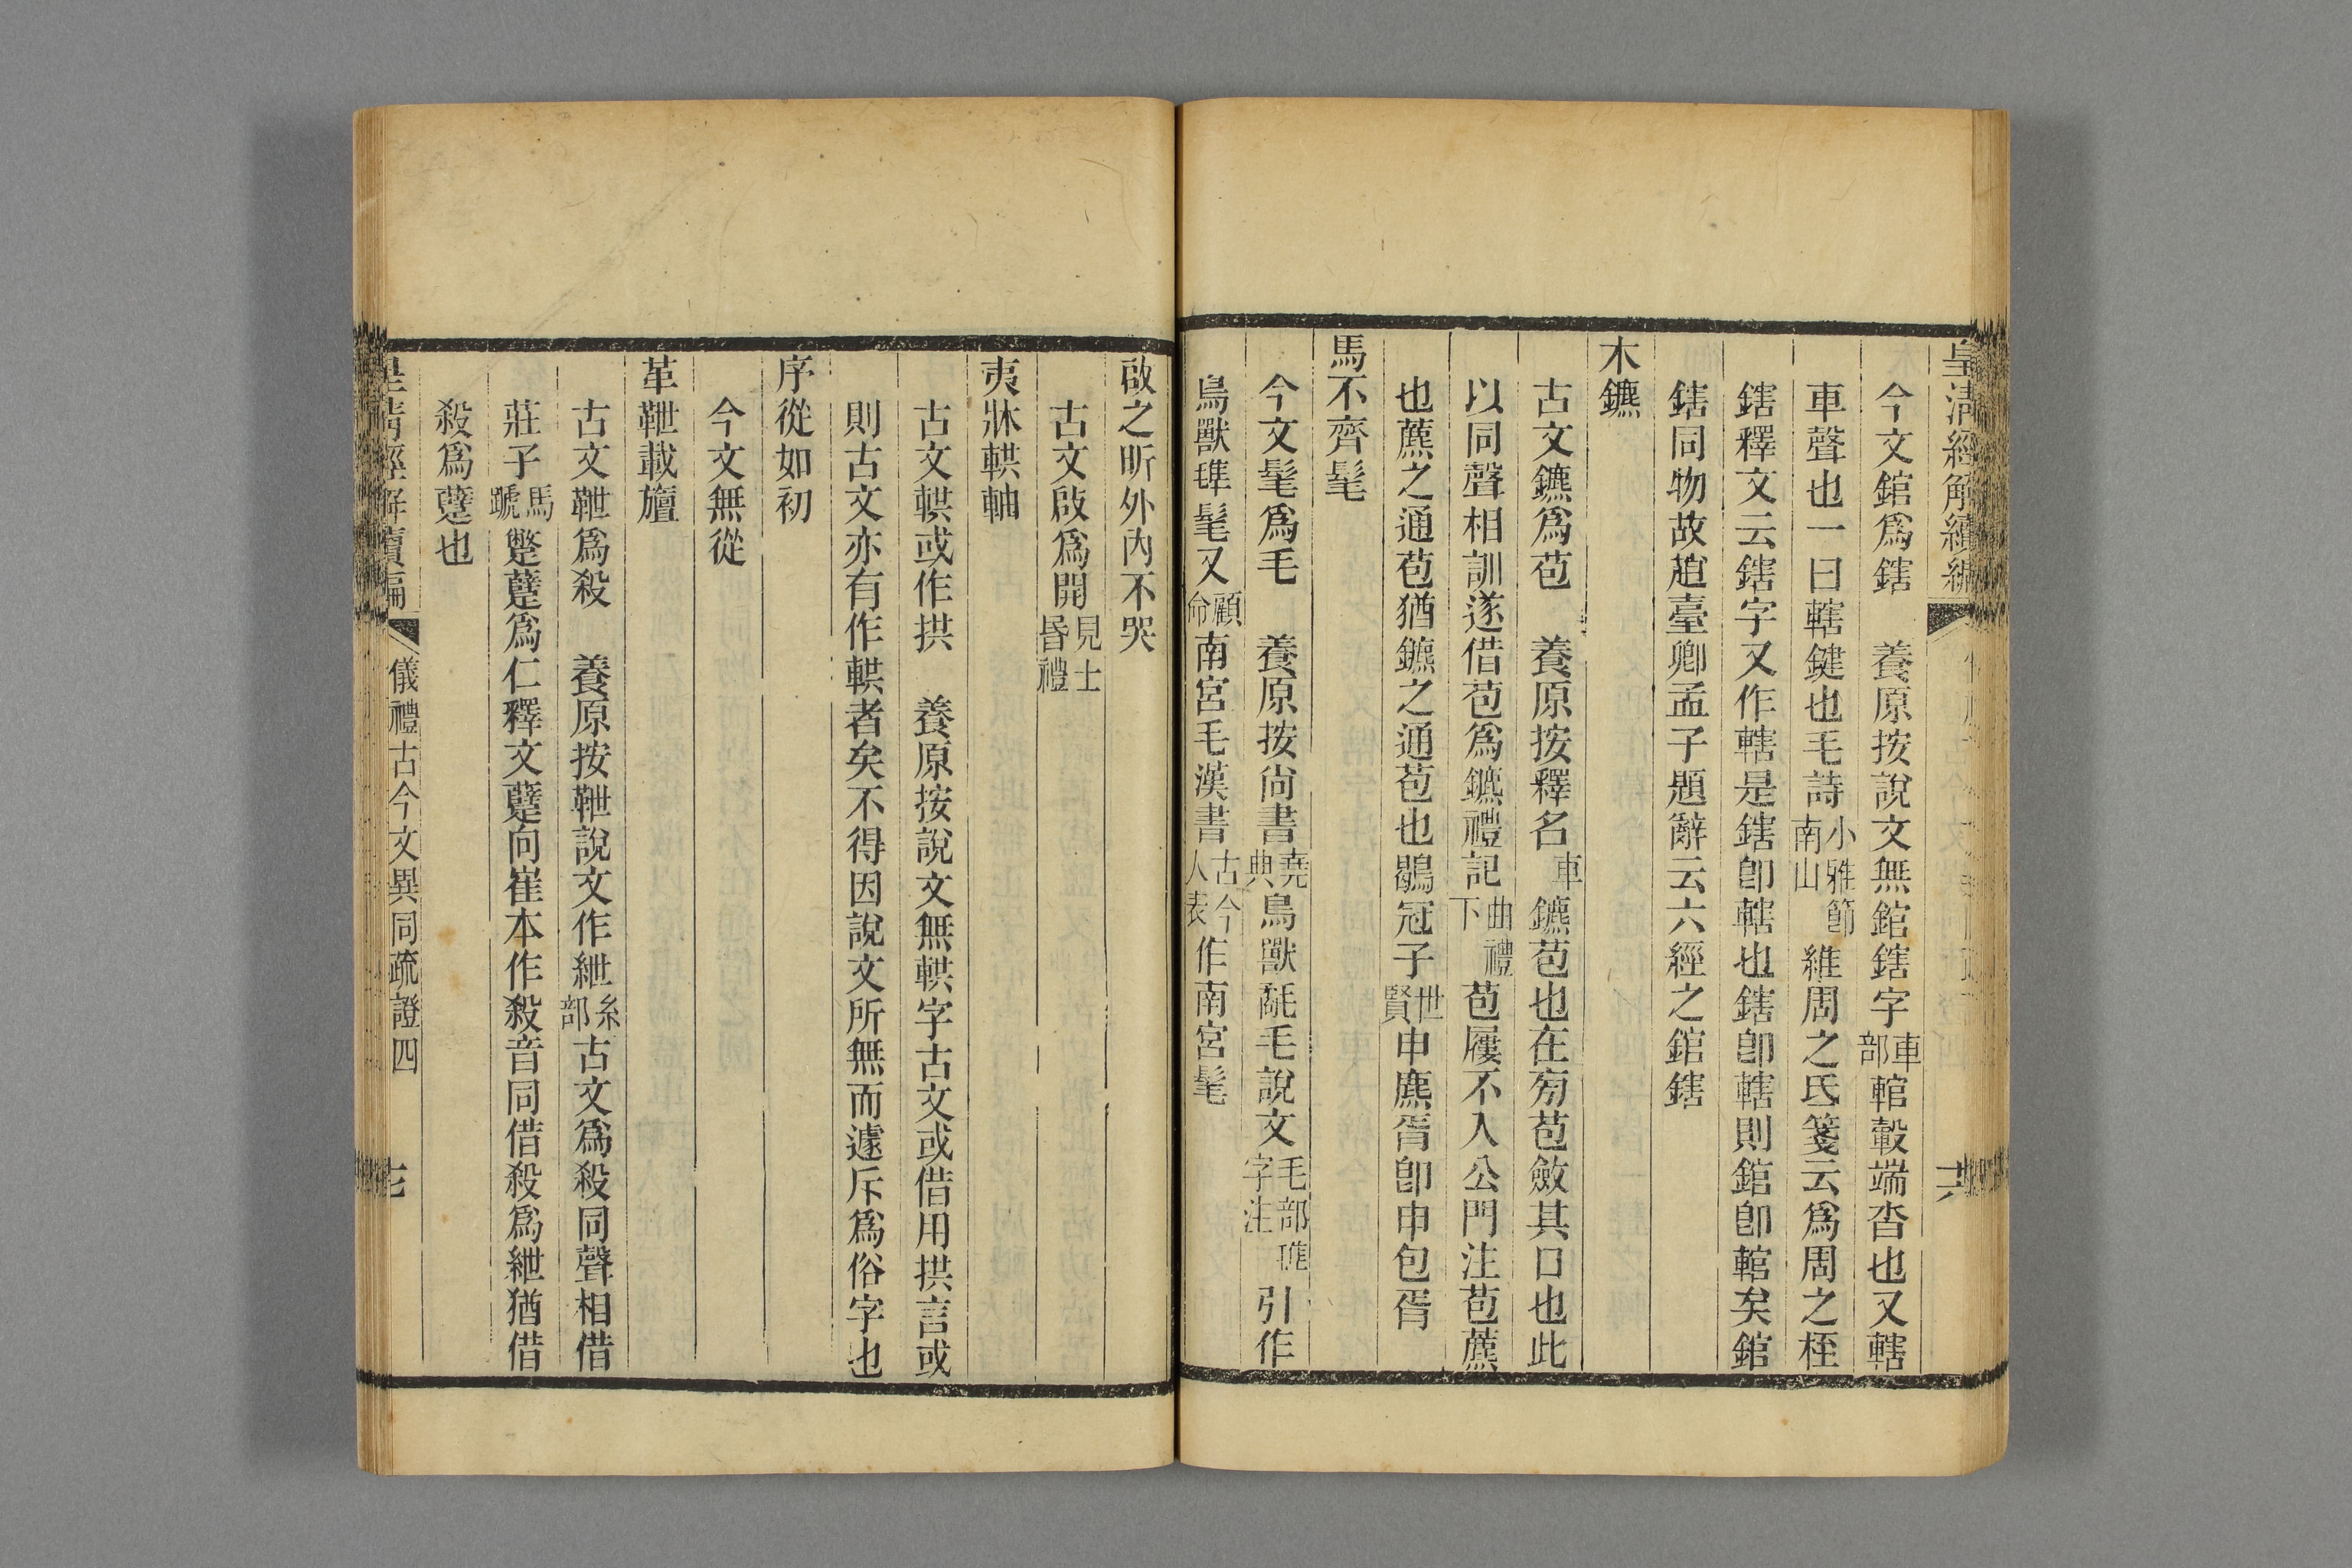 皇清經解續編
十六
今文錧爲鎋　養原按說文無錧鎋字車部輨轂端沓也又轄
車聲也一曰轄鍵也毛詩小雅節南山維周之氐箋云爲周之桎
鎋釋文云鎋字又作轄是鎋卽轄也鎋卽轄則錧卽輨矣錧
鎋同物故趙臺卿孟子題辭云六經之錧鎋
木鑣
古文鑣爲苞　養原按釋名車鑣苞也在旁苞斂其口也此
以同聲相訓遂借苞爲鑣禮記曲禮下苞屨不入公門注苞藨
也藨之通苞猶鑣之通苞也鶡冠子世賢申麃胥卽申包胥
馬不齊髦
今文髦爲毛　養原按尙書堯典鳥獸氄毛說文毛部㲝字注引作
鳥獸𣯍髦又顧命南宮毛漢書古今人表作南宮髦
啟之昕外內不哭
古文啟爲開見士昏禮
夷牀輁軸
古文輁或作拱　養原按說文無輁字古文或借用拱言或
則古文亦有作輁者矣不得因說文所無而遽斥爲俗字也
序從如初
今文無從
革靾載旜
古文靾爲殺　養原按靾說文作紲糸部古文爲殺同聲相借
莊子馬蹏蹩躠爲仁釋文躠向崔本作殺音同借殺爲紲猶借
殺爲躠也
皇清經解續編
儀禮古今文異同疏證四
十七